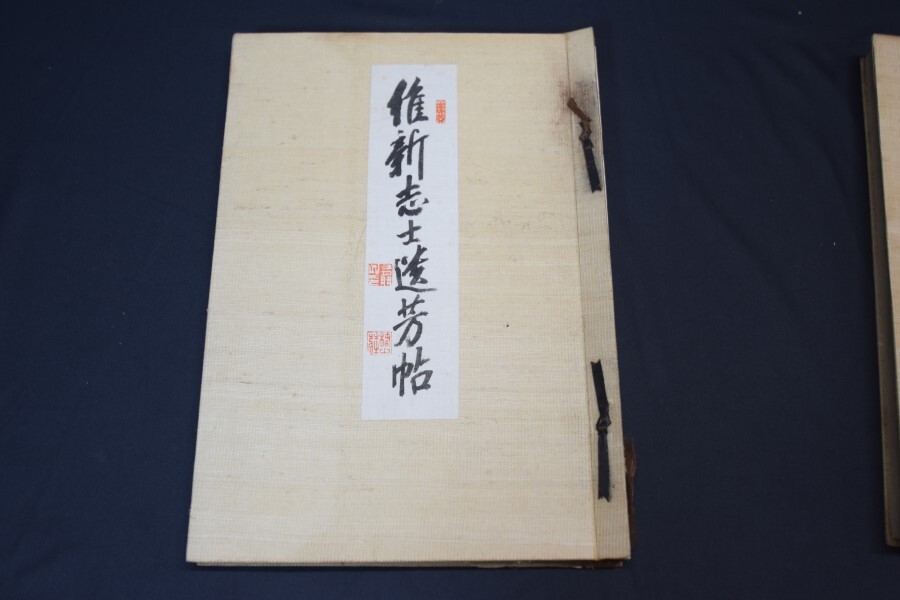 維新志士遺芳帖